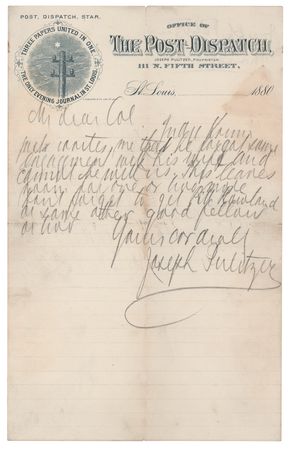 POST, DISPATCH, STAR.
THREE PAPERS UNITED IN ONE.
THE ONLY EVENING JOURNAL IN ST. LOUIS.
OFFICE OF
THE POST-DISPATCH,
JOSEPH PULITZER, PROPRIETOR.
111 N. FIFTH STREET,
St. Louis, 1880
My dear Col
Judge
writes me that he forgot some
engagement with his wife and
cannot be with us. This leaves
room for one or two more
Don't forget to get
or some other good fellow
or two
Yours cordially
Joseph Pulitzer